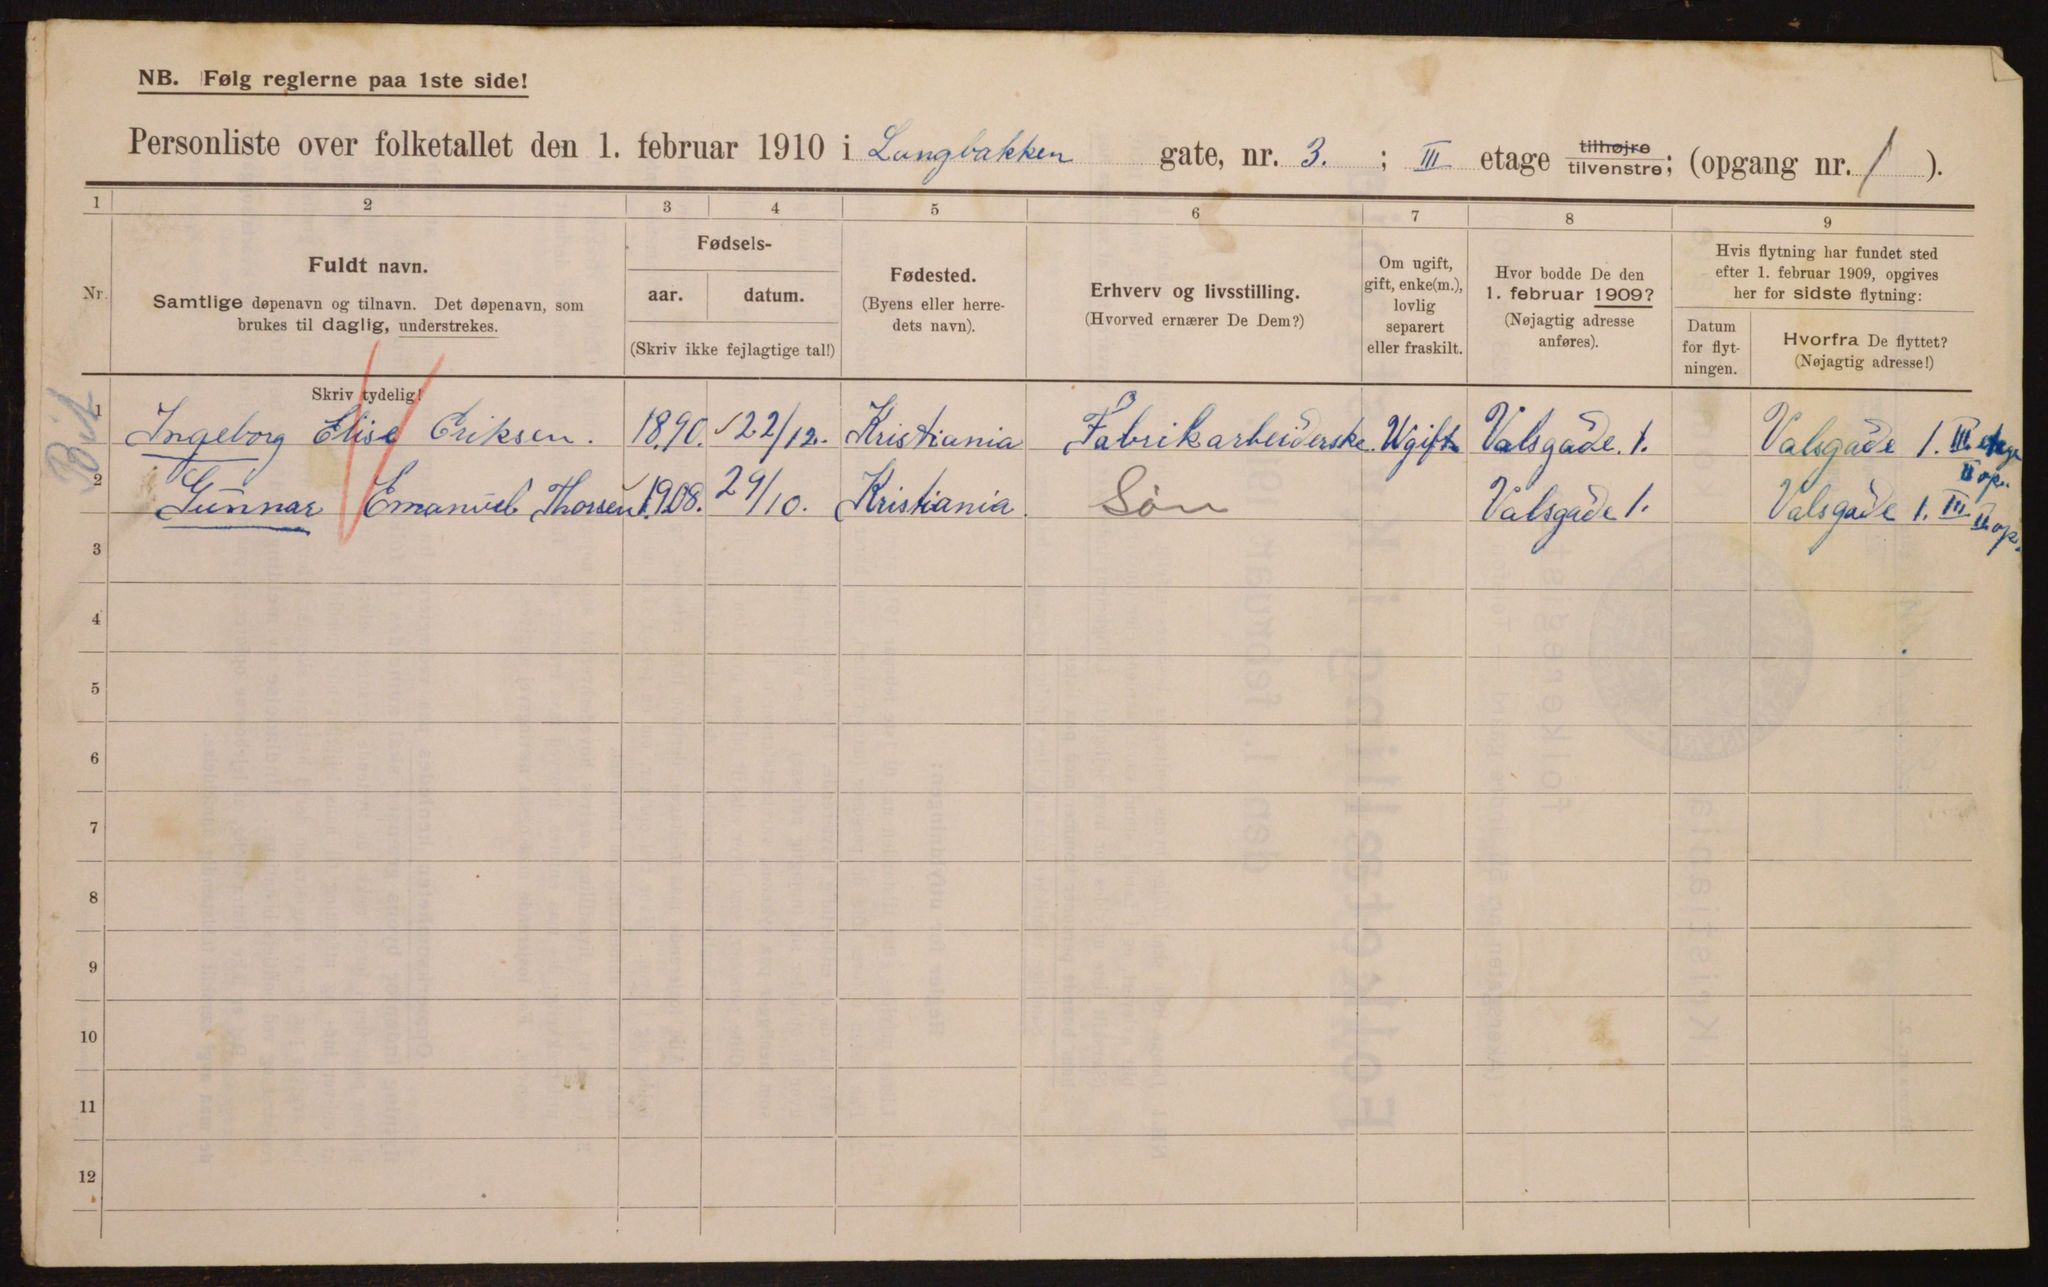 NB. Følg reglerne paa 1ste side!
Personliste over folketallet den 1. februar 1910 i Langbakken gate, nr. 3. ; III etage tilhøjre tilvenstre; (opgang nr. 1 ).
1 2 3 4 5 6 7 8 9
Nr.
Fuldt navn.
Samtlige døpenavn og tilnavn. Det døpenavn, som
brukes til daglig, understrekes.
Skriv tydelig!
Fødsels-
aar. datum.
(Skriv ikke fejlagtige tal!)
Fødested.
(Byens eller herre-
dets navn).
Erhverv og livsstilling.
(Hvorved ernærer De Dem?)
Om ugift,
gift, enke(m.),
lovlig
separert
eller fraskilt.
Hvor bodde De den
1. februar 1909?
(Nøjagtig adresse
anføres).
Hvis flytning har fundet sted
efter 1. februar 1909, opgives
her for sidste flytning:
Datum
for flyt-
ningen.
Hvorfra De flyttet?
(Nøjagtig adresse!)
1 Ingeborg Elise Eriksen. 1890. 22/12. Kristiania Fabrikarbeiderske Ugift Valsgade. 1. Valsgade 1. III etage
II op.
2 Gunnar Emanuel Thorsen 1908. 29/10. Kristiania. Søn Valsgade 1. Valsgade 1. III
II op.
3
4
5
6
7
8
9
10
11
12